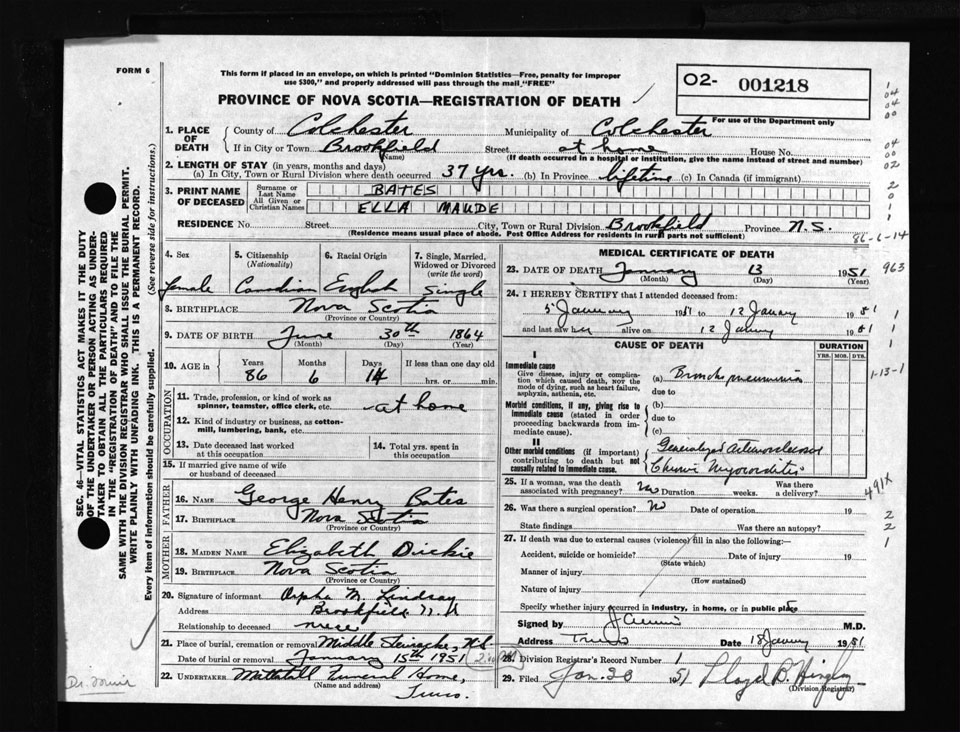 FORM 6
This form if placed in an envelope, on which is printed "Dominion Statistics—Free, penalty for improper
use $300," and properly addressed will pass through the mail "FREE"
PROVINCE OF NOVA SCOTIA—REGISTRATION OF DEATH
O2- 001218
For use of the Department only
1. PLACE OF DEATH
County of Colchester Municipality of Colchester
If in City or Town Brookfield Street at home House No.
(Name) (If death occurred in a hospital or institution, give the name instead of street and number)
2. LENGTH OF STAY (in years, months and days)
(a) In City, Town or Rural Division where death occurred 37 yrs. (b) In Province lifetime (c) In Canada (if immigrant)
3. PRINT NAME OF DECEASED
Surname or Last Name BATES
All Given or Christian Names ELLA MAUDE
RESIDENCE No. Street City, Town or Rural Division Brookfield Province N.S.
(Residence means usual place of abode. Post Office Address for residents in rural parts not sufficient)
4. Sex female
5. Citizenship (Nationality) Canadian
6. Racial Origin English
7. Single, Married, Widowed or Divorced (write the word) Single
8. BIRTHPLACE Nova Scotia
(Province or Country)
9. DATE OF BIRTH June 30th 1864
(Month) (Day) (Year)
10. AGE in Years 86 Months 6 Days 14 If less than one day old hrs. or min.
OCCUPATION
11. Trade, profession, or kind of work as spinner, teamster, office clerk, etc. at home
12. Kind of industry or business, as cotton-mill, lumbering, bank, etc.
13. Date deceased last worked at this occupation
14. Total yrs. spent in this occupation
15. If married give name of wife or husband of deceased
FATHER
16. NAME George Henry Bates
17. BIRTHPLACE Nova Scotia
(Province or Country)
MOTHER
18. MAIDEN NAME Elizabeth Dickie
19. BIRTHPLACE Nova Scotia
(Province or Country)
20. Signature of informant Orpha M. Lindsay
Address Brookfield N.S
Relationship to deceased niece
21. Place of burial, cremation or removal Middle Stewiacke, N.S.
Date of burial or removal January 15th 1951
22. UNDERTAKER Mattatall Funeral Home,
(Name and address) Truro.
MEDICAL CERTIFICATE OF DEATH
23. DATE OF DEATH January 13 1951
(Month) (Day) (Year)
24. I HEREBY CERTIFY that I attended deceased from:
5 January 1951 to 12 January 1951
and last saw her alive on 12 January 1951
CAUSE OF DEATH
DURATION
YRS. MOS. DYS.
I
Immediate cause
Give disease, injury or complication which caused death, NOT the mode of dying, such as heart failure, asphyxia, asthenia, etc.
(a) Broncho pneumonia
due to
Morbid conditions, if any, giving rise to immediate cause (stated in order proceeding backwards from immediate cause).
(b)
due to
(c)
II
Other morbid conditions (if important) contributing to death but not causally related to immediate cause.
Generalized Arteriosclerosis
Chronic Myocarditis
25. If a woman, was the death associated with pregnancy? No Duration weeks. Was there a delivery?
26. Was there a surgical operation? No Date of operation 19
State findings Was there an autopsy?
27. If death was due to external causes (violence) fill in also the following:—
Accident, suicide or homicide? Date of injury 19
(State which)
Manner of injury
(How sustained)
Nature of injury
Specify whether injury occurred in industry, in home, or in public place
Signed by M.D.
Address Truro Date 18 January 1951
28. Division Registrar's Record Number 1
29. Filed Jan. 20 1951 Lloyd B. Hingley
(Division Registrar)
SEC. 46—VITAL STATISTICS ACT MAKES IT THE DUTY
OF THE UNDERTAKER OR PERSON ACTING AS UNDER-
TAKER TO OBTAIN ALL THE PARTICULARS REQUIRED
IN THE "REGISTRATION OF DEATH" AND TO FILE THE
SAME WITH THE DIVISION REGISTRAR WHO SHALL ISSUE THE BURIAL PERMIT.
WRITE PLAINLY WITH UNFADING INK. THIS IS A PERMANENT RECORD.
Every item of information should be carefully supplied. (See reverse side for instructions.)
86-6-14
963
1-13-1
491X